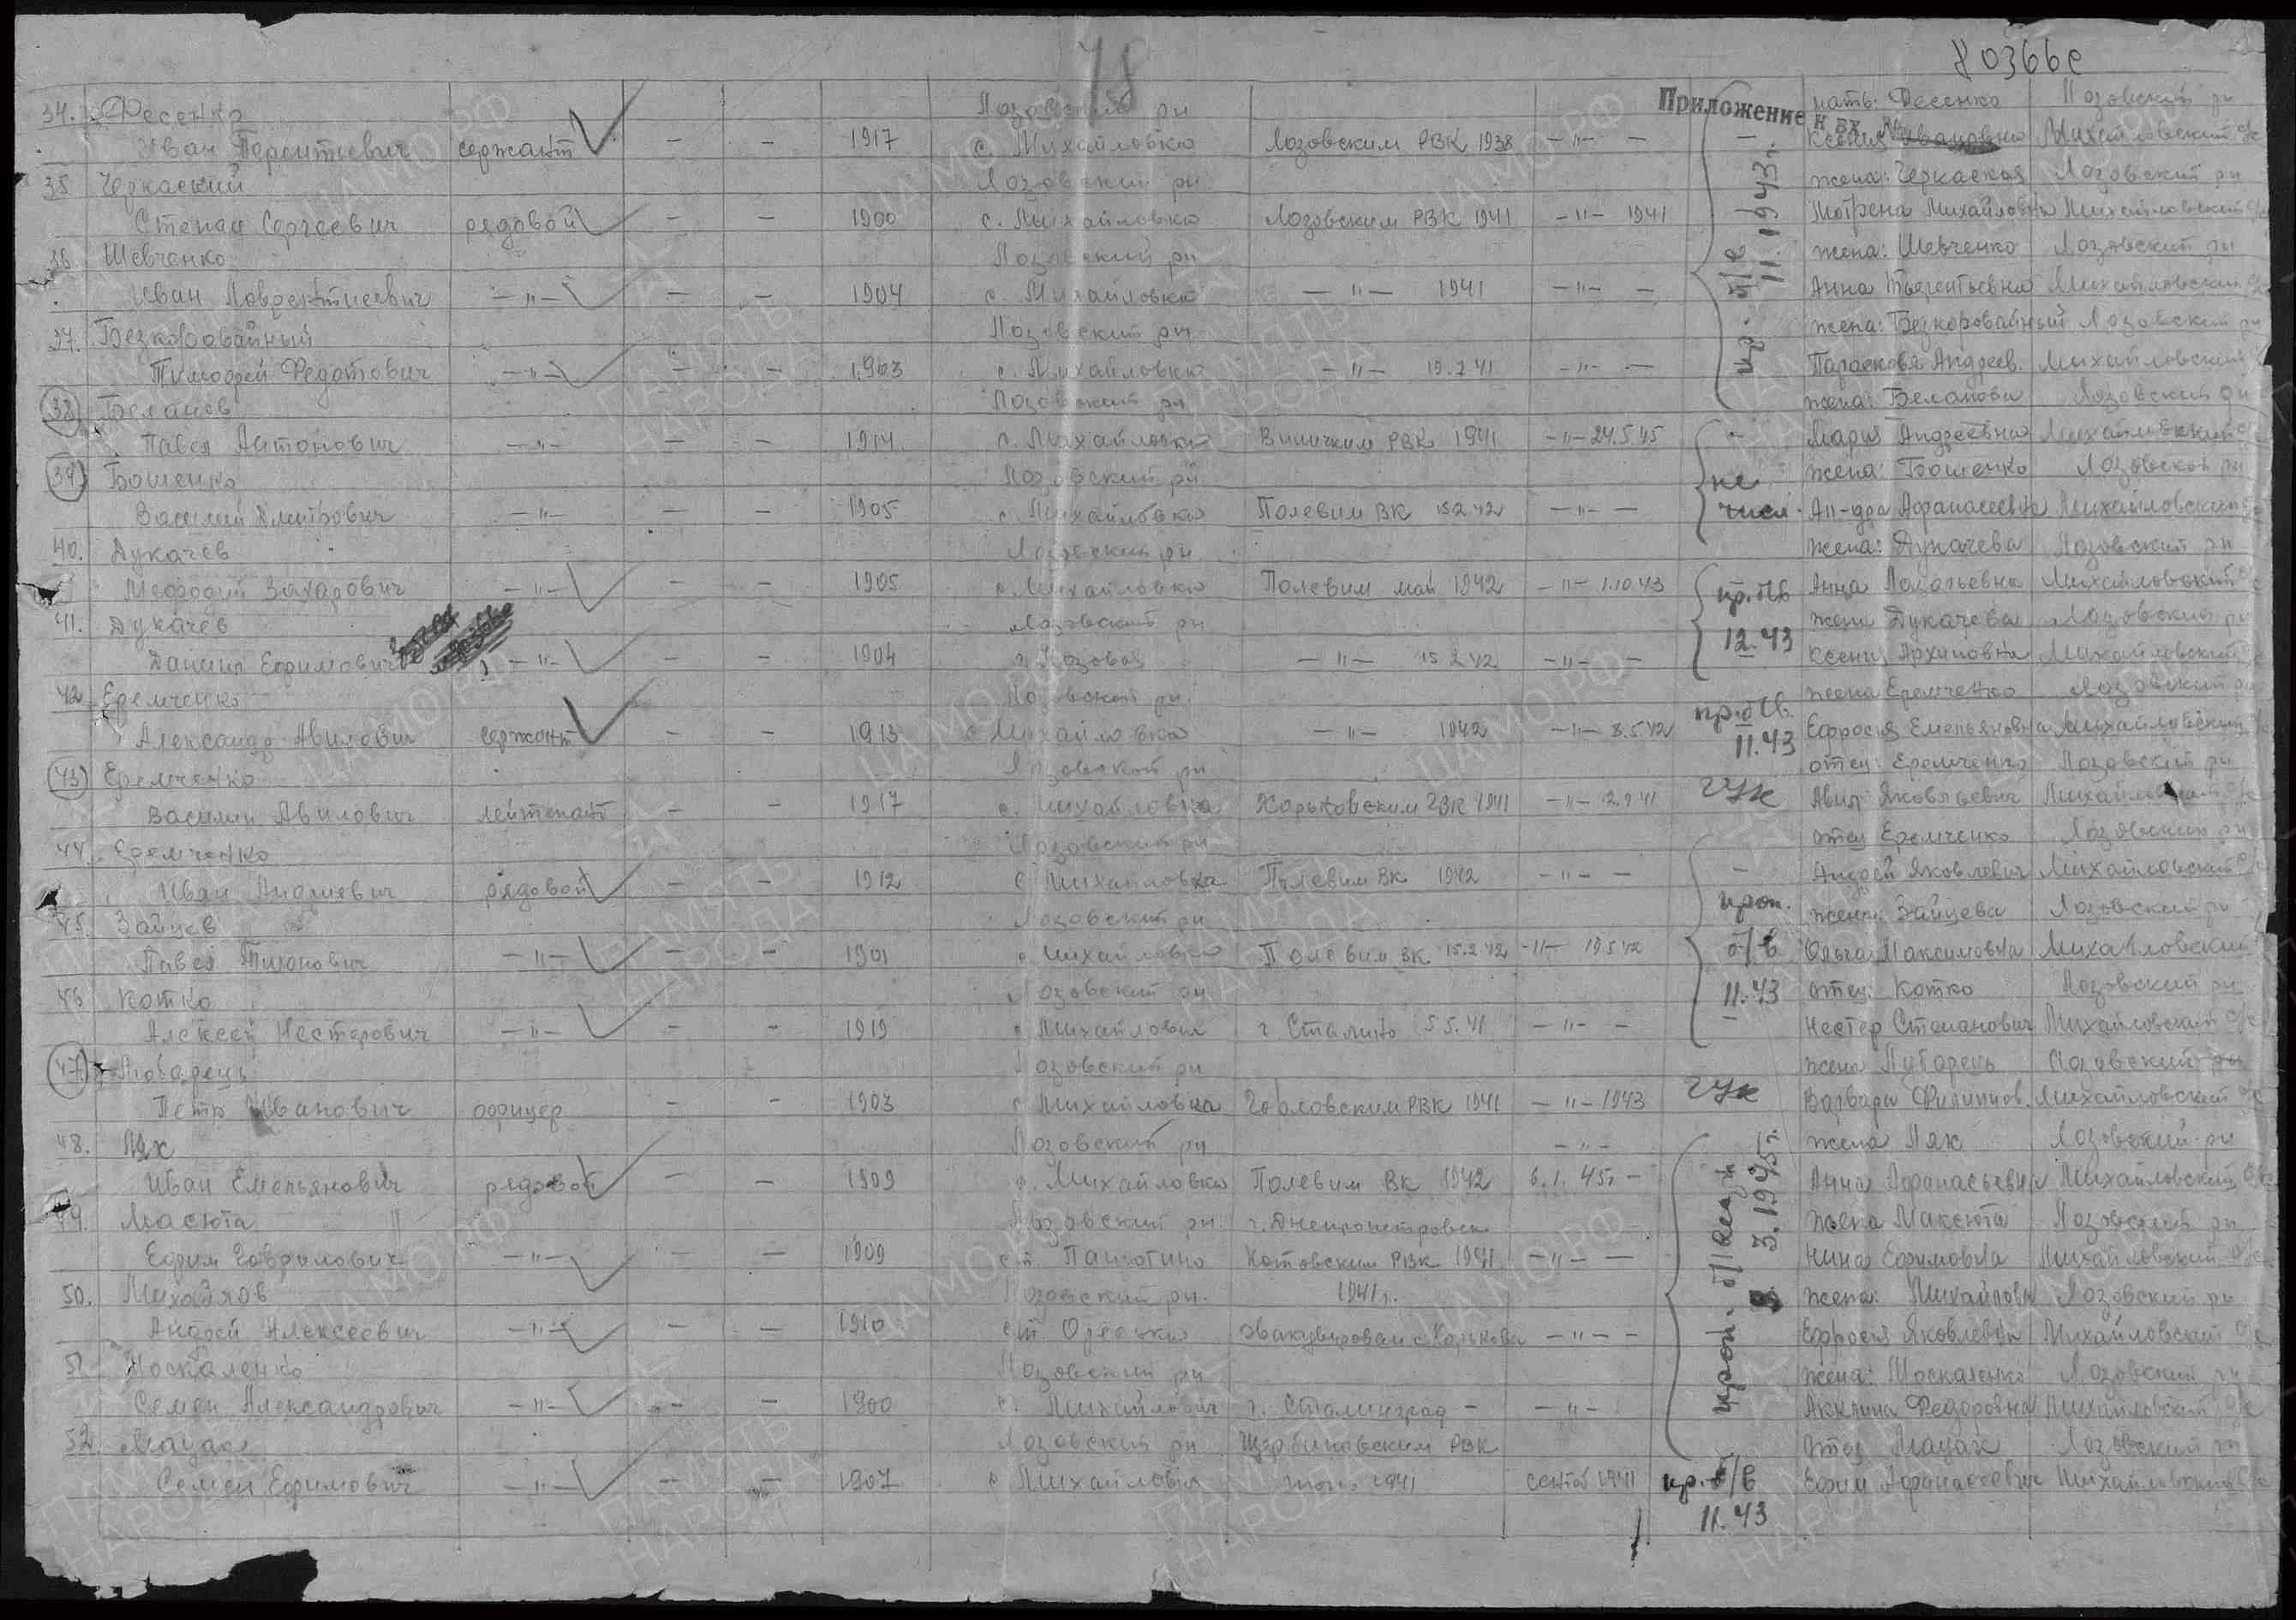 80366с
78
Приложение к вх. №
34. Фесенко Лозовский рн мать: Фесенко Лозовский рн
Иван Терентиевич сержант — — 1917 с. Михайловка Лозовским РВК 1938 —"— — — Ксения Ивановна Михайловский с/с
35 Черкаский Лозовский рн жена: Черкаская Лозовский рн
Степан Сергеевич рядовой — — 1900 с. Михайловка Лозовским РВК 1941 —"— 1941 Мотрена Михайловна Михайловский с/с
36. Шевченко Лозовский рн жена: Шевченко Лозовский рн
Иван Лаврентиевич —"— — — 1904 с. Михайловка —"— 1941 —"— — Анна Терентьевна Михайловский с/с
37. Безкоровайный Лозовский рн жена: Безкоровайный Лозовский рн
Тимофей Федотович —"— — — 1903 с. Михайловка —"— 19.7 41 —"— — Парасковя Андреев. Михайловский
пр. б/в 11. 1943 г.
38 Беланов Лозовский рн жена: Беланова Лозовский рн
Павел Антонович —"— — — 1914 с. Михайловка РВК 1941 —"— 24.5.45 — Мария Андреевна Михайловский с/с
39. Бошенко Лозовский рн не жена: Бошенко Лозовский рн
Василий Дмитрович —"— — — 1905 с. Михайловка Полевим ВК 15.2.42 —"— — числ. Ал-дра Афанасеевна Михайловский с/с
40. Дукачев Лозовский рн жена: Дукачева Лозовский рн
Мефодий Захарович —"— — — 1905 с. Михайловка Полевим май 1942 —"— 1.10.43 пр. б/в Анна Михайловский с/с
41. Дукачев Лозовский рн жена Дукачева Лозовский рн
Данил Ефимович —"— — — 1904 г. Лозовая —"— 15 2 42 —"— — 12.43 Ксения Архиповна Михайловский с/с
42 Еремченко Лозовской рн. жена Еремченко Лозовский рн
Александр Авилович сержант — — 1913 с Михайловка —"— 1942 —"— 8.5.42 пр. б/в. 11.43 Ефросия Емельяновна Михайловский с/с
43 Еремченко Лозовской рн отец: Еремченко Лозовский рн
Василий Авилович лейтенант — — 1917 с. Михайловка Харьковским ГВК 1941 —"— 12.9.41 ГУК Авил Яковльевич Михайловский с/с
44. Еремченко Лозовский рн отец Еремченко Лозовский рн
Иван Андриевич рядовой — — 1912 с Михайловка Полевим ВК 1942 —"— — — Андрей Яковлевич Михайловский с/с
45. Зайцев Лозовский рн проп. жена: Зайцева Лозовский рн
Павел Тихонович —"— — — 1901 с Михайловка Полевим ВК 15.2 42 —"— 19.5 42 б/в Ольга Максимовна Михайловский
46 Котко Лозовский рн 11.43 отец: Котко Лозовский рн
Алексей Нестерович —"— — — 1919 с Михайловка г. Сталино 5 5. 41 —"— — Нестер Степанович Михайловский с/с
47. Лозовский рн жена Лозовский рн
Петр Иванович офицер — — 1903 с Михайловка Горловским РВК 1941 —"— 1943 ГУК Варвара Филипов. Михайловский с/с
48. Лях Лозовский рн —"— жена Лях Лозовский рн
Иван Емельянович рядовой — — 1909 с. Михайловка Полевим ВК 1942 6.1.45г — Анна Афанасьевна Михайловский с/с
49. Масюта Лозовский рн. г. Днепропетровск жена Максюта Лозовский рн
Ефим Гаврилович —"— — — 1909 ст. Панютино Котовским РВК 1941 —"— — Нина Ефимовна Михайловский с/с
50. Михайлов Лозовский рн. 1941 г. жена: Михайлова Лозовский рн
Андрей Алексеевич —"— — — 1910 ст. эвакуирован с Харькова —"— — Ефросия Яковлевна Михайловский с/с
проп. б/вести 3. 1945 г.
51 Москаленко Лозовский рн жена: Москаленко Лозовский рн
Семен Александрович —"— — — 1900 с. Михайловка г. Сталинград — —"— Акилина Федоровна Михайловский с/с
52 Мацак Лозовский рн Щербиновским РВК отец Мацак Лозовский рн
Семен Ефимович —"— — — 1907 с Михайловка 1941 1941 пр. б/в Ефим Афанасеевич Михайловский с/с
11.43